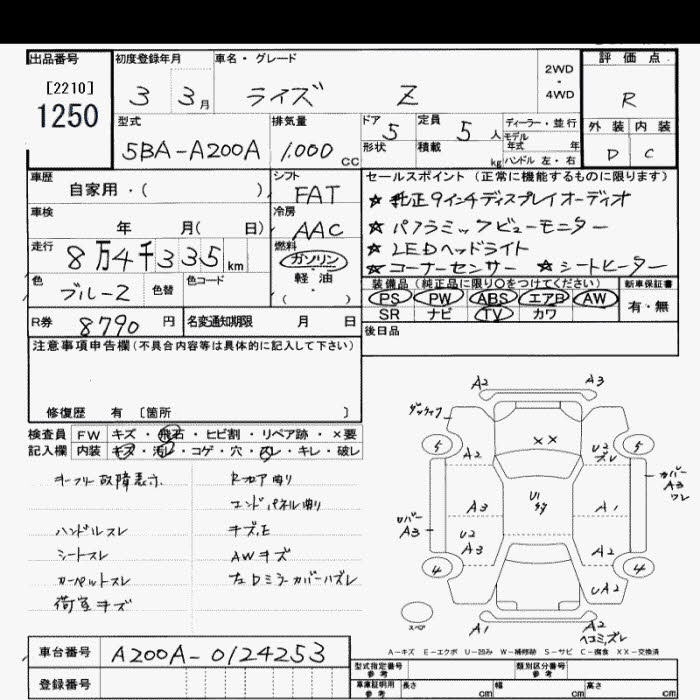 出品番号
[2210]
1250
初度登録年月
3 3月
車名・グレード
ライズ Z
2WD
・
4WD
評価点
R
外装 内装
D C
型式
5BA-A200A
排気量
1,000 CC
ドア
5
定員
5 人
形状
積載
kg
ディーラー・並行
モデル
年式 年
ハンドル 左・右
車歴
自家用・( )
シフト
FAT
車検
年 月( 日)
冷房
AAC
走行
8万4千335km
燃料
ガソリン
軽・油
・
( )
色
ブルー2
色替
色コード
R券
8790 円
名変通知期限 月 日
セールスポイント (正常に機能するものに限ります)
★ 純正9インチディスプレイオーディオ
★ パノラミックビューモニター
★ LEDヘッドライト
★コーナーセンサー ★シートヒーター
装備品 (純正品に限り○をつけてください)
PS PW ABS エアB AW
SR ナビ TV カワ
新車保証書
有・無
後日品
注意事項申告欄 (不具合内容等は具体的に記入して下さい)
修復歴 有 〔箇所 〕
検査員 FW キズ・飛石・ヒビ割・リペア跡・×要
記入欄 内装 キズ・汚レ・コゲ・穴・スレ・キレ・破レ
オーフリー故障表示
ハンドルスレ
シートスレ
カーペットスレ
荷室キズ
Rフロア曲り
エンドパネル曲り
キズ,E
AWキズ
左Dミラーカバーハズレ
A2 A3
××
5 5
A2
U2
ズレ
カバー
A3
ワレ
A3
U1
A1
カバー
A3
U2
A3
A2
4 4
UA2
スペア
A1
A2
ヘコミ,ズレ
A-キズ E-エクボ U-凹み W-補修跡 S-サビ C-腐食 XX-交換済
車台番号
A200A-0124253
登録番号
型式指定番号
参考
類別区分番号
参考
車庫証明用
参考
長さ cm 幅 cm 高さ cm